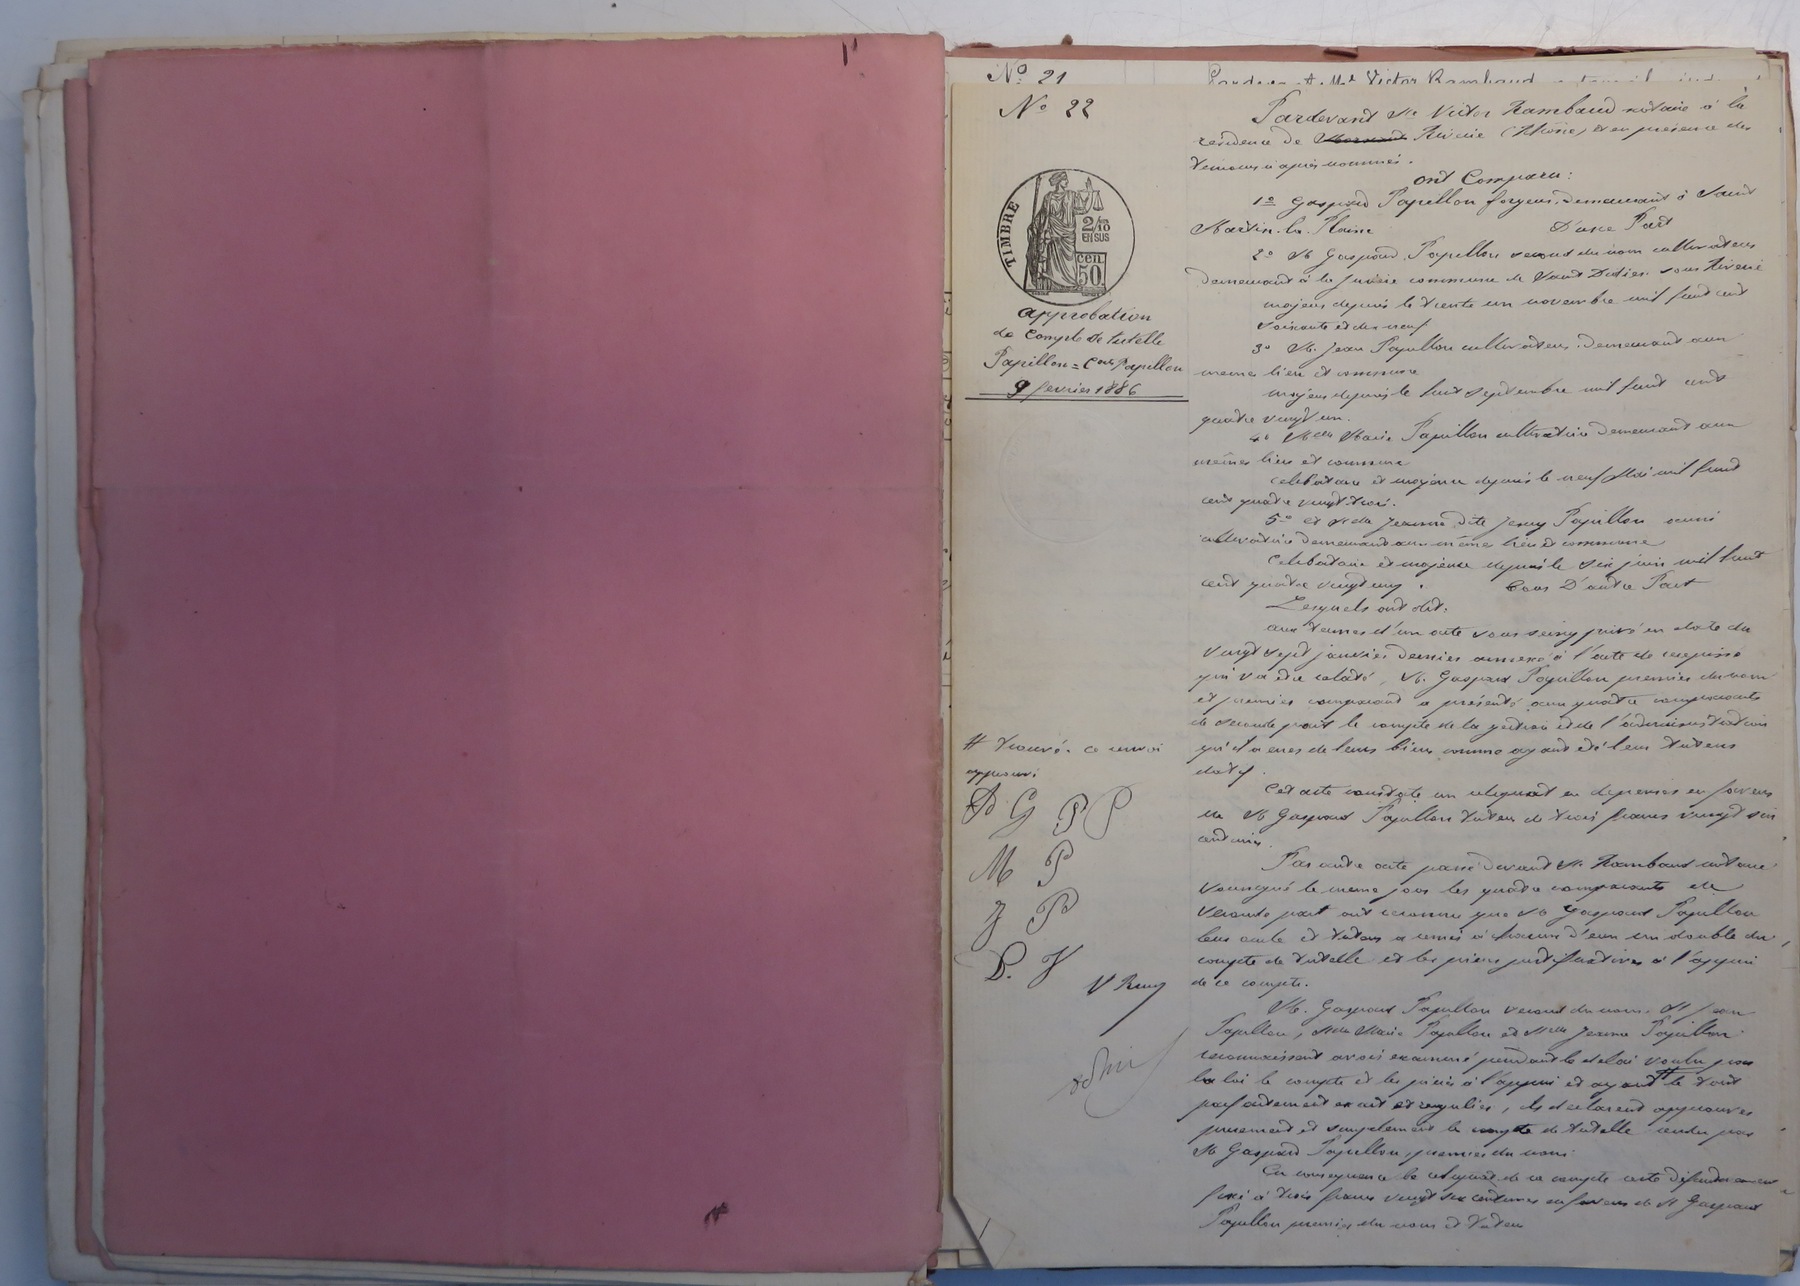 No 21
Pardevant Me Victor Rambaud
No 22
TIMBRE
2/10
EN SUS
CEN.
50
approbation
de Compte de tutelle
Papillon = Cons Papillon
9 février 1886
Pardevant Me Victor Rambaud notaire à la
résidence de Mornant Riverie (Rhône) et en présence des
témoins ci après nommés.
ont Comparu:
1o Gaspard Papillon forgeur, demeurant à Saint
Martin-la-Plaine D'une Part
2o Mr Gaspard Papillon second du nom cultivateur
demeurant à la commune de Saint Didier sous Riverie
majeur depuis le trente un novembre mil huit cent
soixante et dix neuf
3o Mr Jean Papillon cultivateur demeurant aux
mêmes lieu et commune
majeur depuis le huit septembre mil huit cent
quatre vingt un.
4o Melle Marie Papillon cultivatrice demeurant aux
mêmes lieu et commune
célibataire et majeure depuis le neuf Mai mil huit
cent quatre vingt trois.
5o et Melle Jeanne dite Jenny Papillon aussi
cultivatrice demeurant aux même lieu et commune
Célibataire et majeure depuis le six juin mil huit
cent quatre vingt cinq. Tous D'autre Part
Lesquels ont dit:
aux termes d'un acte sous seing privé en date du
vingt sept janvier dernier annexé à l'acte de récépissé
qui va être relaté, Mr Gaspard Papillon premier du nom
et premier comparant a présenté aux quatre comparants
de seconde part le compte de la gestion et de l'administration
qu'il a eues de leurs biens comme ayant été leur tuteur
datif.
Cet acte constate un reliquat en dépenses en faveur
de Mr Gaspard Papillon tuteur de trois francs vingt six
centimes.
Par autre acte passé devant Me Rambaud notaire
soussigné le même jour les quatre comparants de
seconde part ont reconnu que Mr Gaspard Papillon
leur oncle et tuteur a remis à chacun d'eux un double du
compte de tutelle et les pièces justificatives à l'appui
de ce compte.
Mr. Gaspard Papillon second du nom, Mr Jean
Papillon, Melle Marie Papillon et Melle Jeanne Papillon
reconnaissent avoir examiné pendant le délai voulu par
la loi le compte et les pièces à l'appui et ayant # le tout
parfaitement exact et régulier, ils déclarent approuver
purement et simplement le compte de tutelle rendu par
Mr Gaspard Papillon, premier du nom.
En conséquence le reliquat de ce compte reste définitivement
fixé à trois francs vingt six centimes en faveur de Mr Gaspard
Papillon premier du nom et tuteur
# trouvé. ce renvoi
approuvé
G P P
M P
J P
P. J